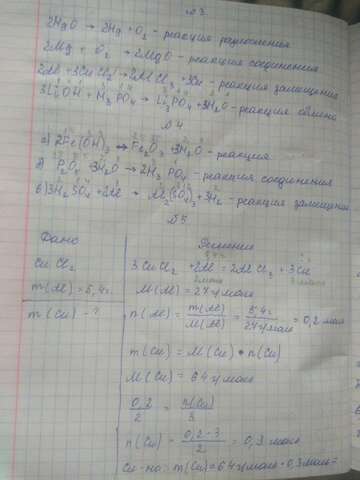 №3
2HgO → 2Hg + O₂ - реакция разложения
2Mg + O₂ → 2MgO - реакция соединения
2Al + 3CuCl₂ → 2AlCl₃ + 3Cu - реакция замещения
3LiOH + H₃PO₄ → Li₃PO₄ + 3H₂O - реакция обмена
№4
а) 2Fe(OH)₃ → Fe₂O₃ + 3H₂O - реакция
б) P₂O₅ + 3H₂O → 2H₃PO₄ - реакция соединения
в) 3H₂SO₄ + 2Al → Al₂(SO₄)₃ + 3H₂ - реакция замещения
№5
Дано Решение
CuCl₂ 3CuCl₂ + 2Al = 2AlCl₃ + 3Cu
m(Al) = 5,4г M(Al) = 27г/моль
m(Cu) - ? n(Al) = m(Al)/M(Al) = 5,4г/27г/моль = 0,2 моль
m(Cu) = M(Cu) • n(Cu)
M(Cu) = 64г/моль
0,2/2 = n(Cu)/3
n(Cu) = 0,2·3/2 = 0,3 моль
m(Cu) = 64г/моль · 0,3моль =